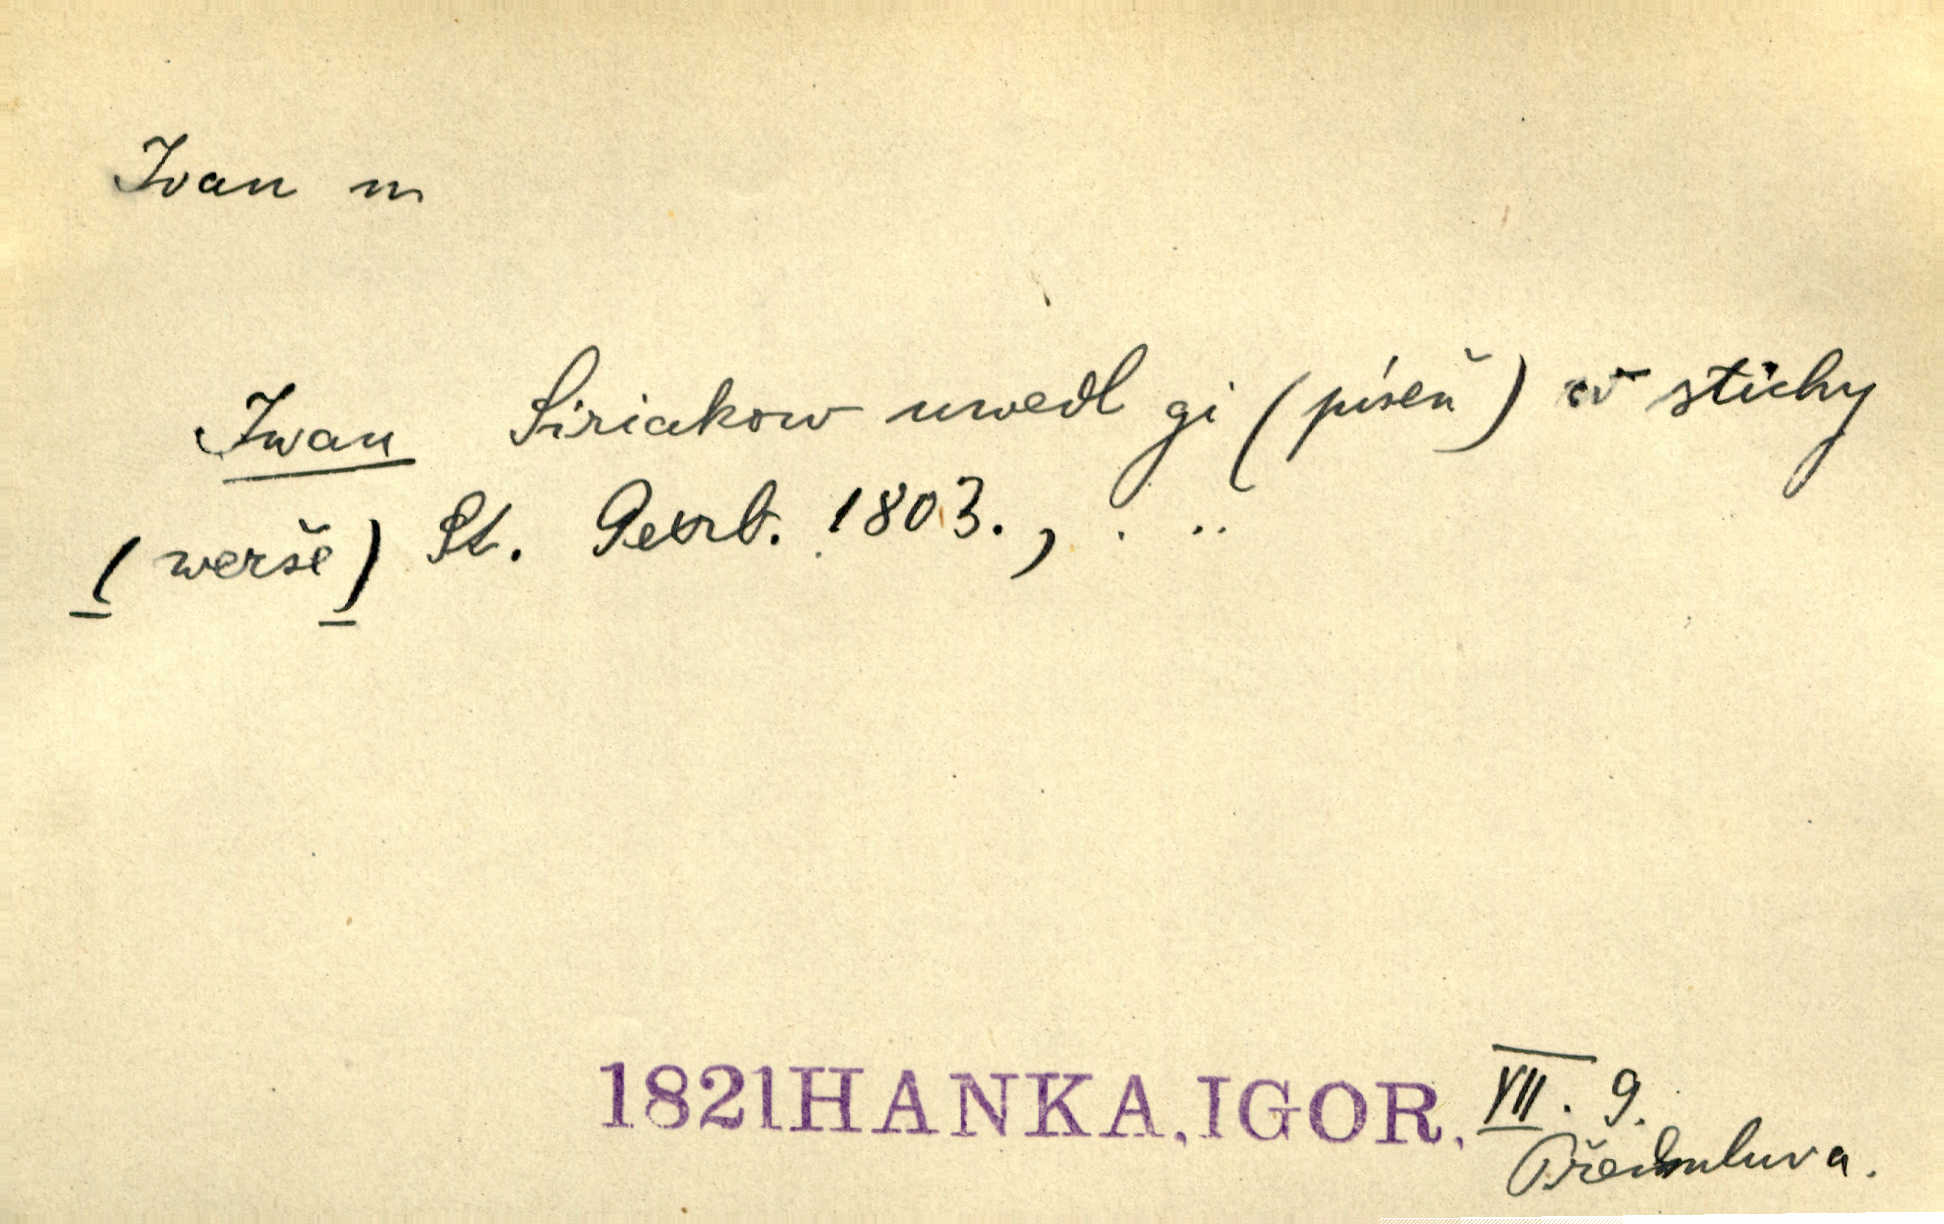 Ivan m
Iwan Siriakow uwedl gi (píseň) w stichy
(werše) St. Petrb. 1803., . ..
1821HANKA, IGOR, VII. 9.
Předmluva.